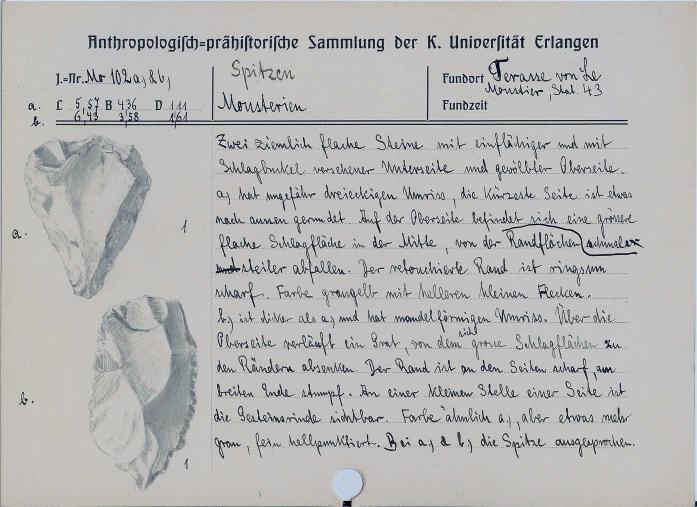 Anthropologisch=prähistorische Sammlung der K. Universität Erlangen
J.=Nr. Mo 102 a, & b,
Spitzen
Fundort Terasse von Le
Moustier, Stat. 43
a. L 5,57 B 4,36 D 1,11
b. 6,43 3,58 1,61
Mousterien
Fundzeit
Zwei ziemlich flache Steine mit einflächiger und mit
Schlagbuckel versehener Unterseite und gewölbter Oberseite.
a, hat ungefähr dreieckigen Umriss, die kürzeste Seite ist etwas
nach aussen gerundet. Auf der Oberseite befindet sich eine grössere
flache Schlagfläche in der Mitte, von der Randflächen schmaler
und steiler abfallen. Der retouchierte Rand ist ringsum
scharf. Farbe graugelb mit helleren kleinen Flecken.
b, ist dicker als a, und hat mandelförmigen Umriss. Über die
Oberseite verläuft ein Grat, von dem sich grosse Schlagflächen zu
den Rändern absenken. Der Rand ist an den Seiten scharf, am
breiten Ende stumpf. An einer kleinen Stelle einer Seite ist
die Gesteinsrinde sichtbar. Farbe ähnlich a, aber etwas mehr
grau, fein hellpunktiert. Bei a, & b, die Spitze ausgesprochen.
a. 1
b. 1